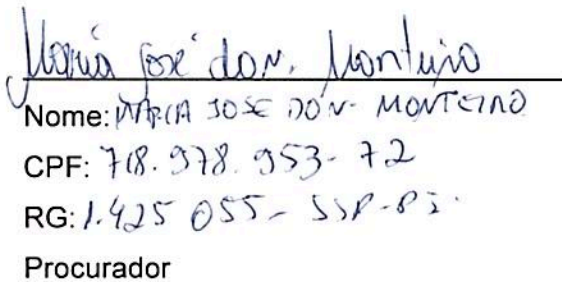 Maria José do N. Monteiro
Nome: MARIA JOSE DO N. MONTEIRO
CPF: 718.978.953-72
RG: 1.425 055- SSP-PI.
Procurador